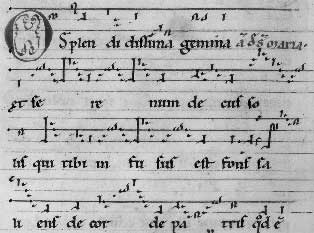 O Splen di dissima gemma &
et se re num de cus so
lis qui tibi in fu sus est fons sa
li ens de cor de pa tris qđ ē